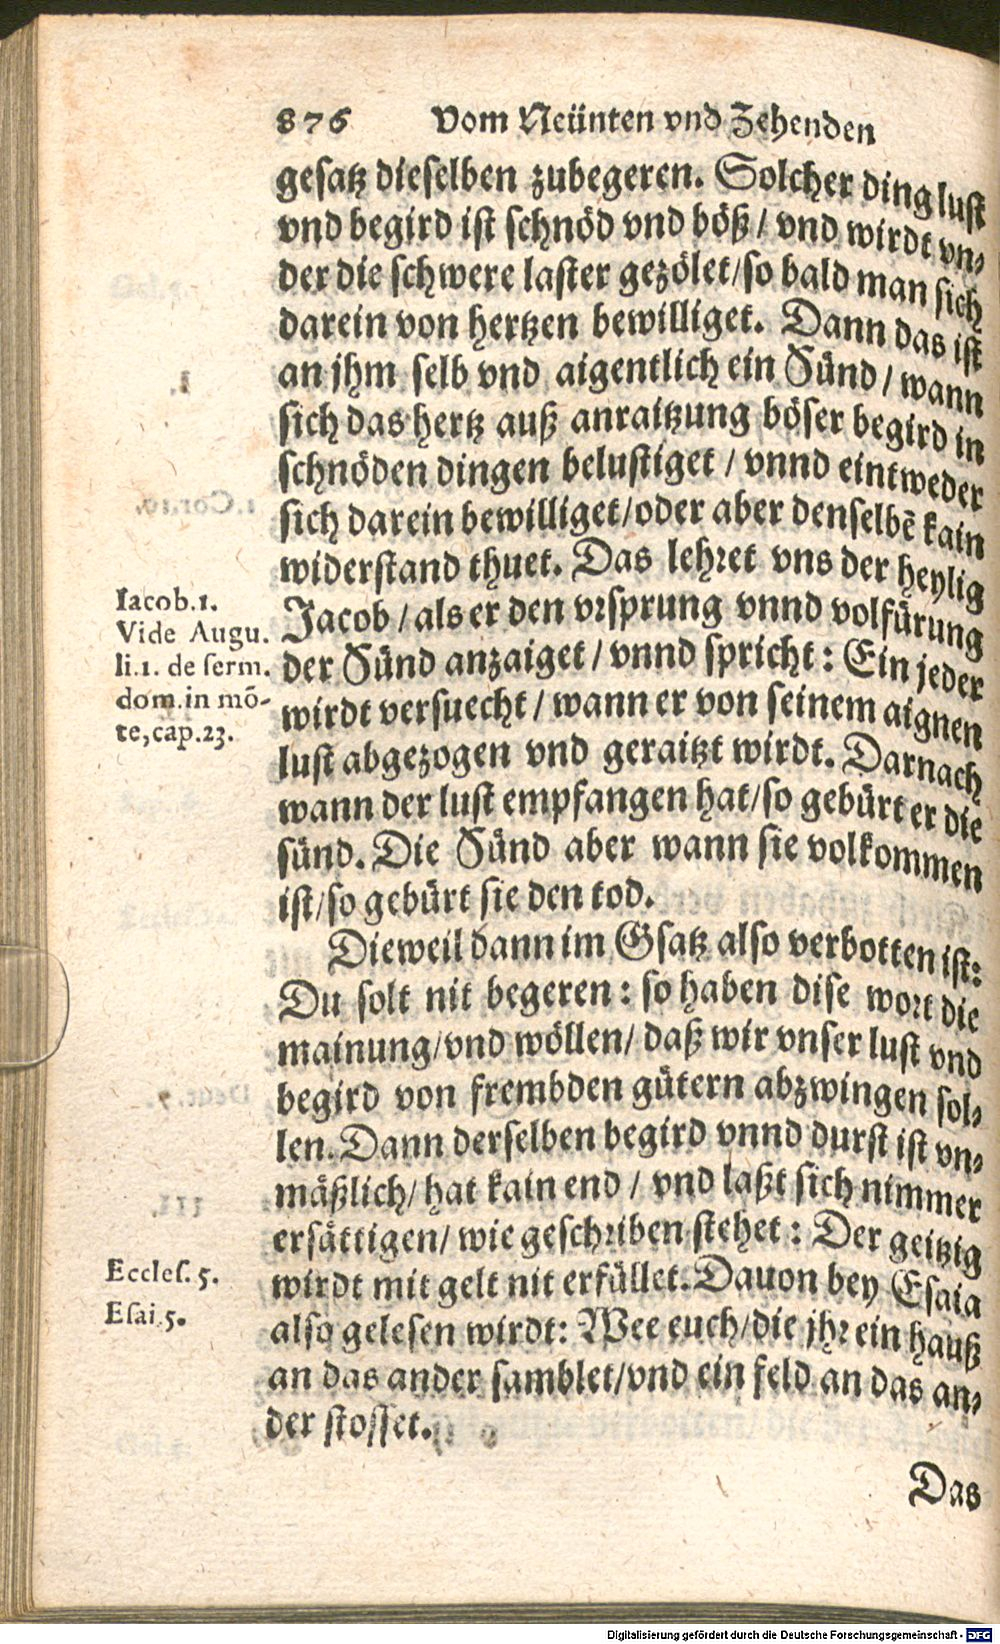 876 Vom Neünten vnd Zehenden
gesatz dieselben zubegeren. Solcher ding lust
vnd begird ist schnöd vnd böß / vnd wirdt vn⸗
der die schwere laster gezölet/so bald man sich
darein von hertzen bewilliget. Dann das ist
an jhm selb vnd aigentlich ein Sünd / wann
sich das hertz auß anraitzung böser begird in
schnöden dingen belustiget / vnnd eintweder
sich darein bewilliget/oder aber denselbē kain
widerstand thuet. Das lehret vns der heylig
Iacob.1.
Jacob / als er den vrsprung vnnd volfürung
Vide Augu.
der Sünd anzaiget / vnnd spricht: Ein jeder
li.1. de serm.
wirdt versuecht / wann er von seinem aignen
dom.in mō-
lust abgezogen vnd geraitzt wirdt. Darnach
te,cap.23.
wann der lust empfangen hat/so gebürt er die
sünd. Die Sünd aber wann sie volkommen
ist/so gebürt sie den tod.
Dieweil dann im Gsatz also verbotten ist:
Du solt nit begeren: so haben dise wort die
mainung/vnd wöllen/ daß wir vnser lust vnd
begird von frembden gütern abzwingen sol⸗
len. Dann derselben begird vnnd durst ist vn⸗
mäßlich/ hat kain end / vnd laßt sich nimmer
ersättigen/ wie geschriben stehet: Der geitzig
Eccles. 5.
wirdt mit gelt nit erfüllet. Dauon bey Esaia
Esai.5.
also gelesen wirdt: Wee euch/die jhr ein hauß
an das ander samblet/vnd ein feld an das an⸗
der stosset.
Das
Digitalisierung gefördert durch die Deutsche Forschungsgemeinschaft - DFG